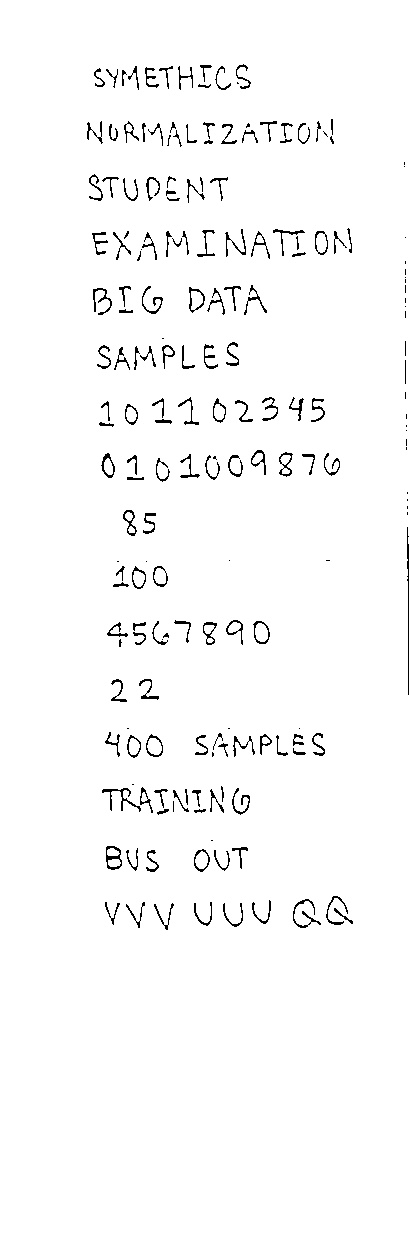 SYMETHICS
NORMALIZATION
STUDENT
EXAMINATION
BIG DATA
SAMPLES
1011102345
0101009876
85
100
4567890
22
400 SAMPLES
TRAINING
BUS OUT
VVV UUU QQ